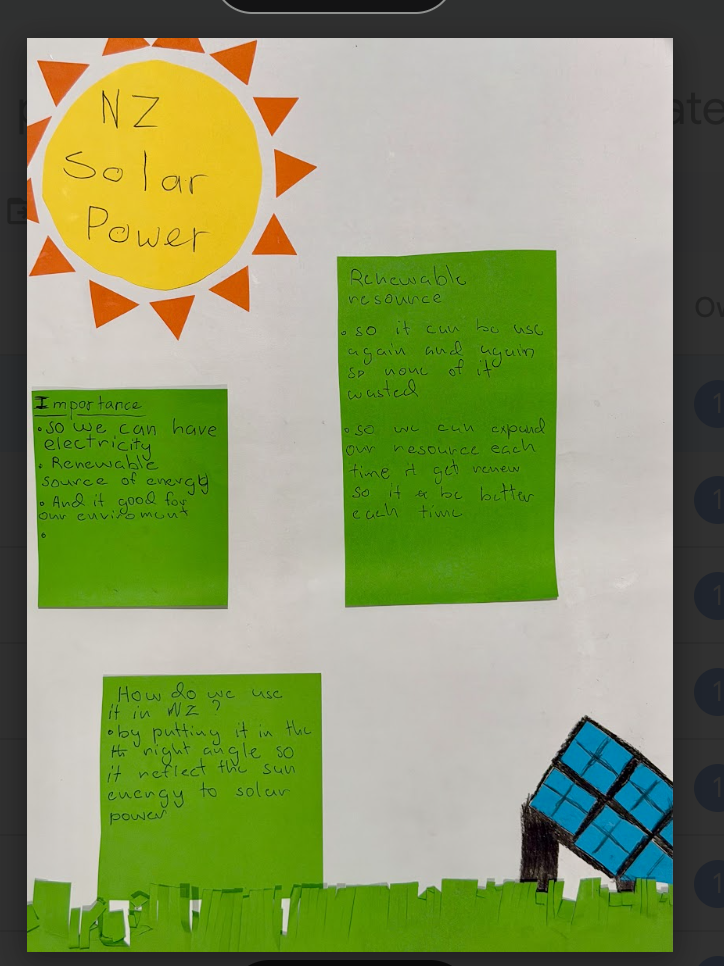 NZ
Solar
Power
Renewable
resource
• so it can be use
again and again
so none of it
wasted
• so we can expand
our resource each
time it get renew
so it be better
each time
Importance
• so we can have
electricity
• Renewable
source of energy
• And it good for
our enviroment
•
How do we use
it in NZ?
• by putting it in the
th right angle so
it reflect the sun
energy to solar
power